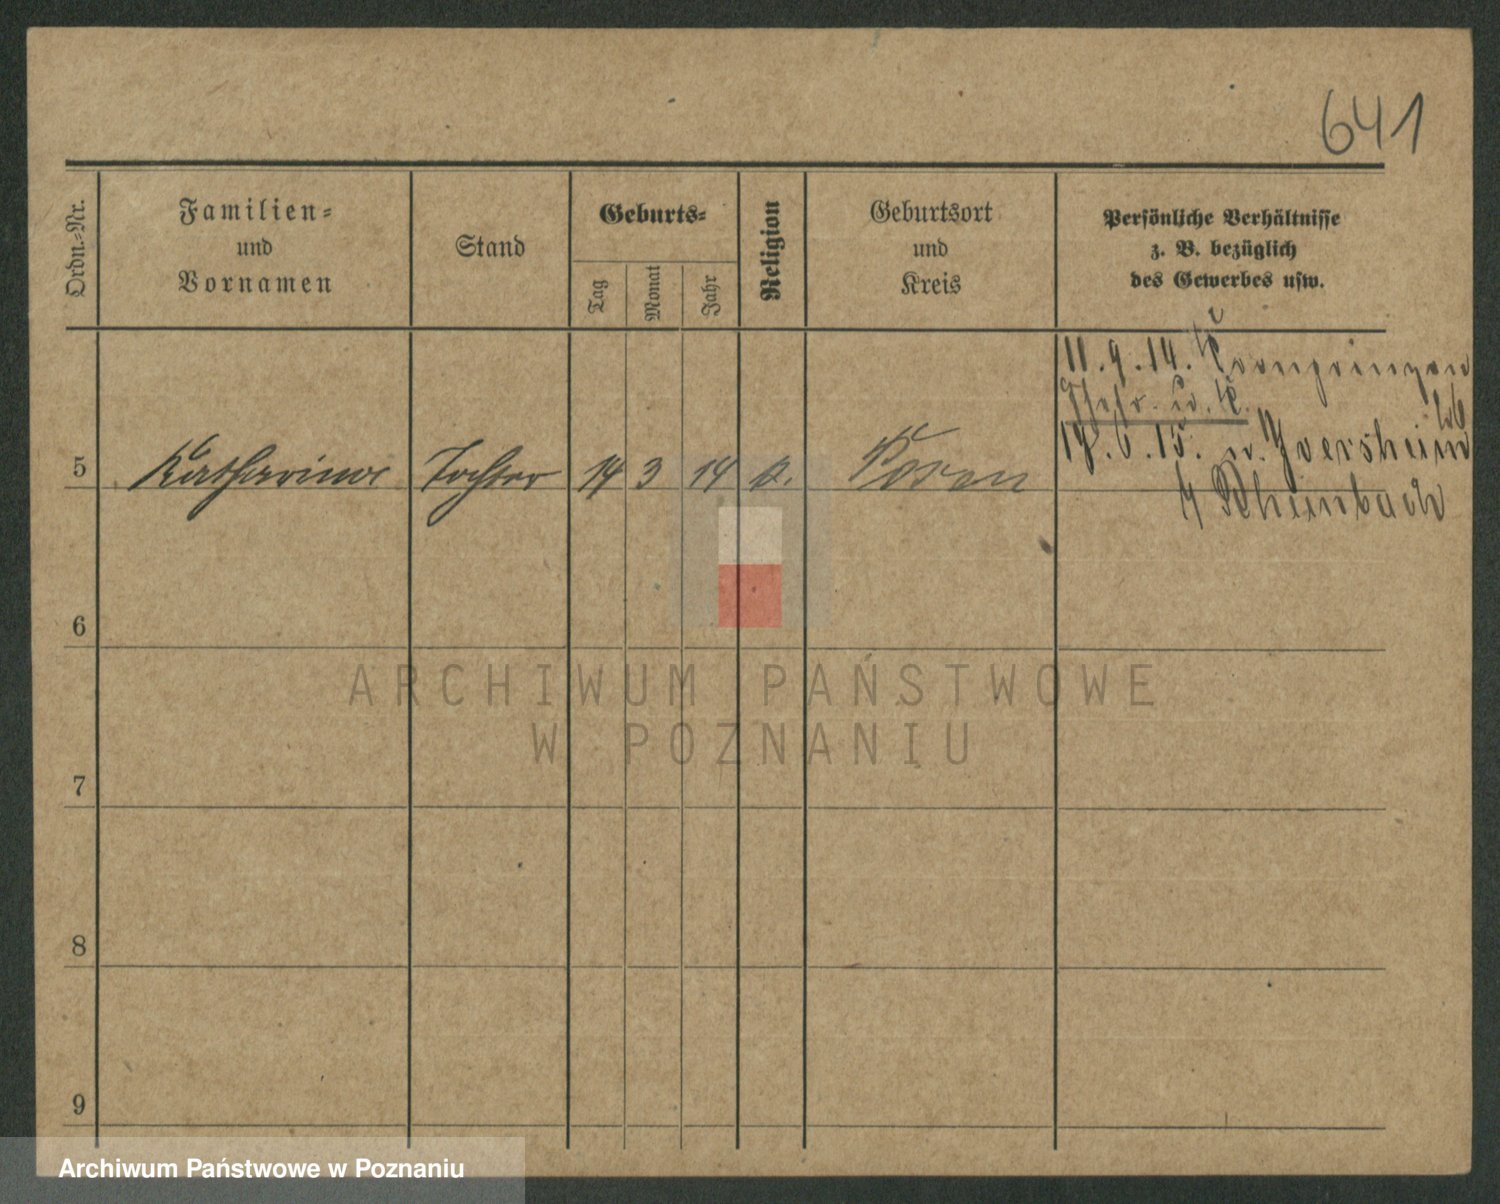 641
Ordn.-Nr.
Familien-
und
Vornamen
Stand
Geburts-
Tag
Monat
Jahr
Religion
Geburtsort
und
Kreis
Persönliche Verhältnisse
z. B. bezüglich
des Gewerbes usw.
11.9.14.
u. K.
5 Katharina Tochter 14 3 14 k. Posen
17.6.15. n. Iversheim
Rheinbach
6
7
8
9
ARCHIWUM PAŃSTWOWE
W POZNANIU
Archiwum Państwowe w Poznaniu